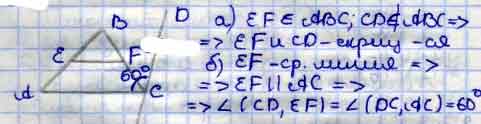 B
D
E
F
60°
A
C
а) EF ∈ ABC; CD ∉ ABC =>
=> EF и CD - скрищ - ся
б) EF - ср. линия =>
=> EF || AC =>
=> ∠ (CD, EF) = ∠ (DC, AC) = 60°